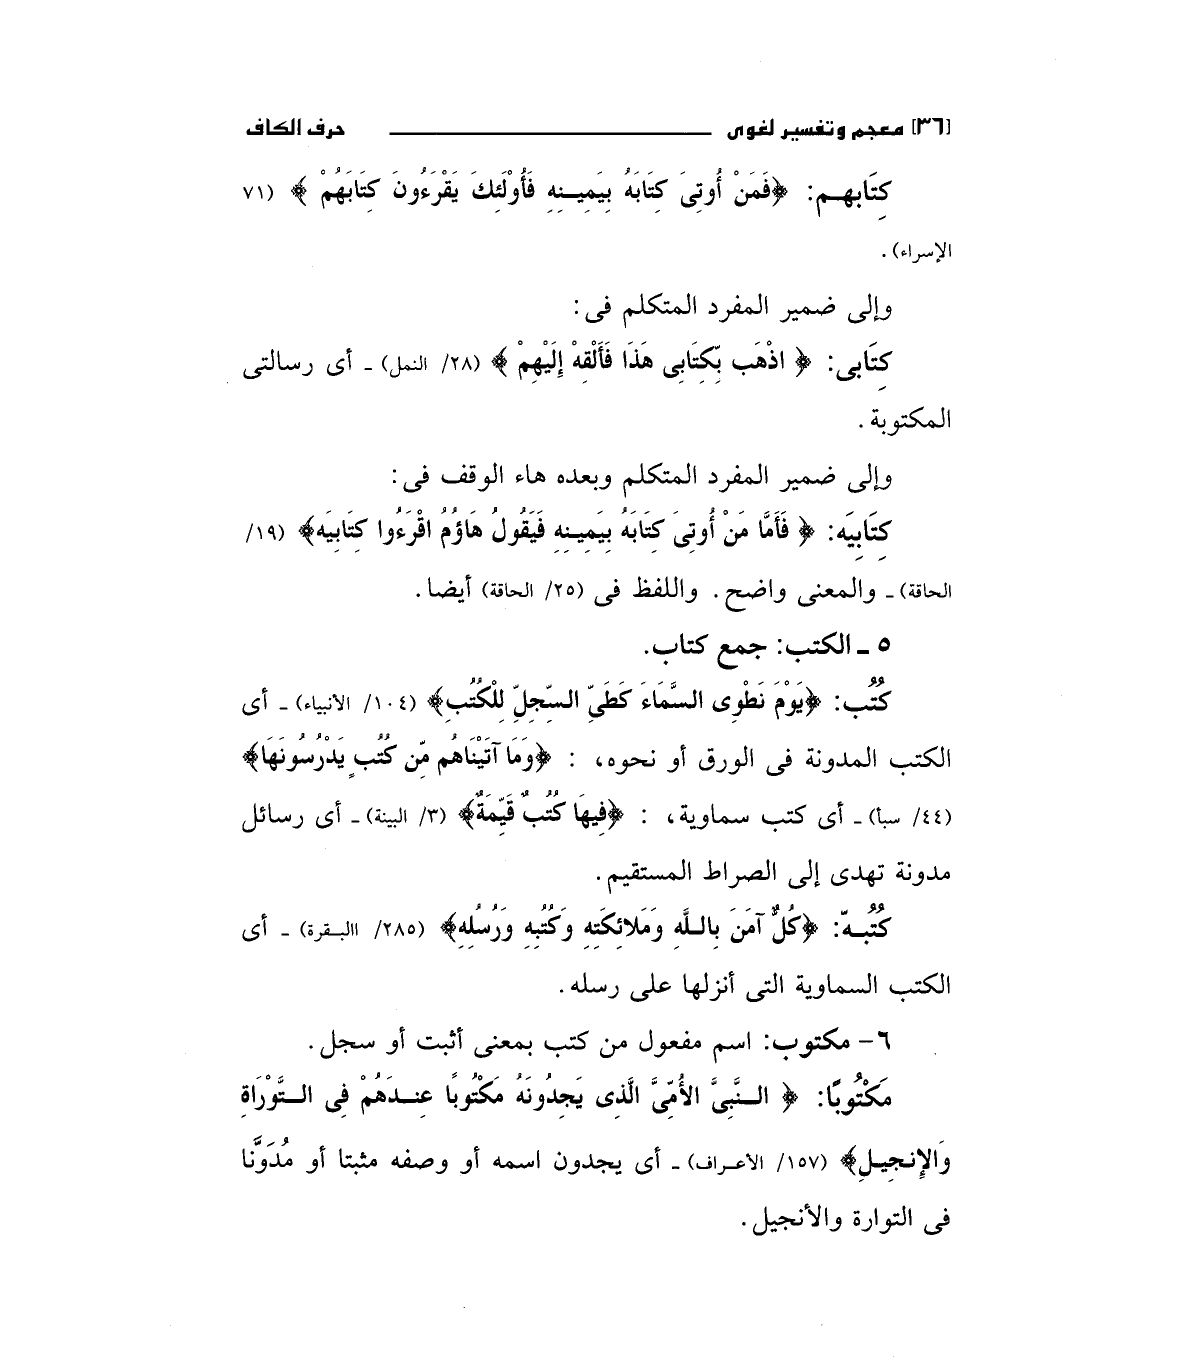 [٣٦] معجم وتفسير لغوى ــــــــــــ حرف الكاف
كِتَابهـم: ﴿فَمَنْ أُوتِىَ كِتَابَهُ بِيَمِينِهِ فَأُوْلَئِكَ يَقْرَءُونَ كِتَابَهُمْ ﴾ (٧١
الإسراء) .
وإلى ضمير المفرد المتكلم فى:
كِتَابِى: ﴿ اذْهَب بِّكِتَابِى هَذَا فَأَلْقِهْ إِلَيْهِمْ ﴾ (٢٨/ النمل) ـ أى رسالتى
المكتوبة .
وإلى ضمير المفرد المتكلم وبعده هاء الوقف فى:
كِتَابِيَه: ﴿ فَأَمَّا مَنْ أُوتِىَ كِتَابَهُ بِيَمِينِهِ فَيَقُولُ هَاؤُمُ اقْرَءُوا كِتَابِيَه﴾ (١٩/
الحاقة) ـ والمعنى واضح. واللفظ فى (٢٥/ الحاقة) أيضا.
٥ ـ الكتب: جمع كتاب.
كُتُب: ﴿يَوْمَ نَطْوِى السَّمَاءَ كَطَىِّ السِّجِلِّ لِلْكُتُبِ﴾ (١٠٤/ الأنبياء) ـ أى
الكتب المدونة فى الورق أو نحوه، : ﴿وَمَا آتَيْنَاهُم مِّن كُتُبٍ يَدْرُسُونَهَا﴾
(٤٤/ سبأ) ـ أى كتب سماوية، : ﴿فِيهَا كُتُبٌ قَيِّمَةٌ﴾ (٣/ البينة) ـ أى رسائل
مدونة تهدى إلى الصراط المستقيم.
كُتُبـهّ: ﴿كُلٌّ آمَنَ بِاللَّهِ وَمَلائِكَتِهِ وَكُتُبِهِ وَرُسُلِهِ﴾ (٢٨٥/ االبـقرة) ـ أى
الكتب السماوية التى أنزلها على رسله.
٦- مكتوب: اسم مفعول من كتب بمعنى أثبت أو سجل.
مَكْتُوبًا: ﴿ النَّبِىَّ الأُمِّىَّ الَّذِى يَجِدُونَهُ مَكْتُوبًا عِندَهُمْ فِى التَّوْرَاةِ
وَالإِنجِيلِ﴾ (١٥٧/ الأعـراف) ـ أى يجدون اسمه أو وصفه مثبتا أو مُدَوَّنا
فى التوارة والأنجيل.